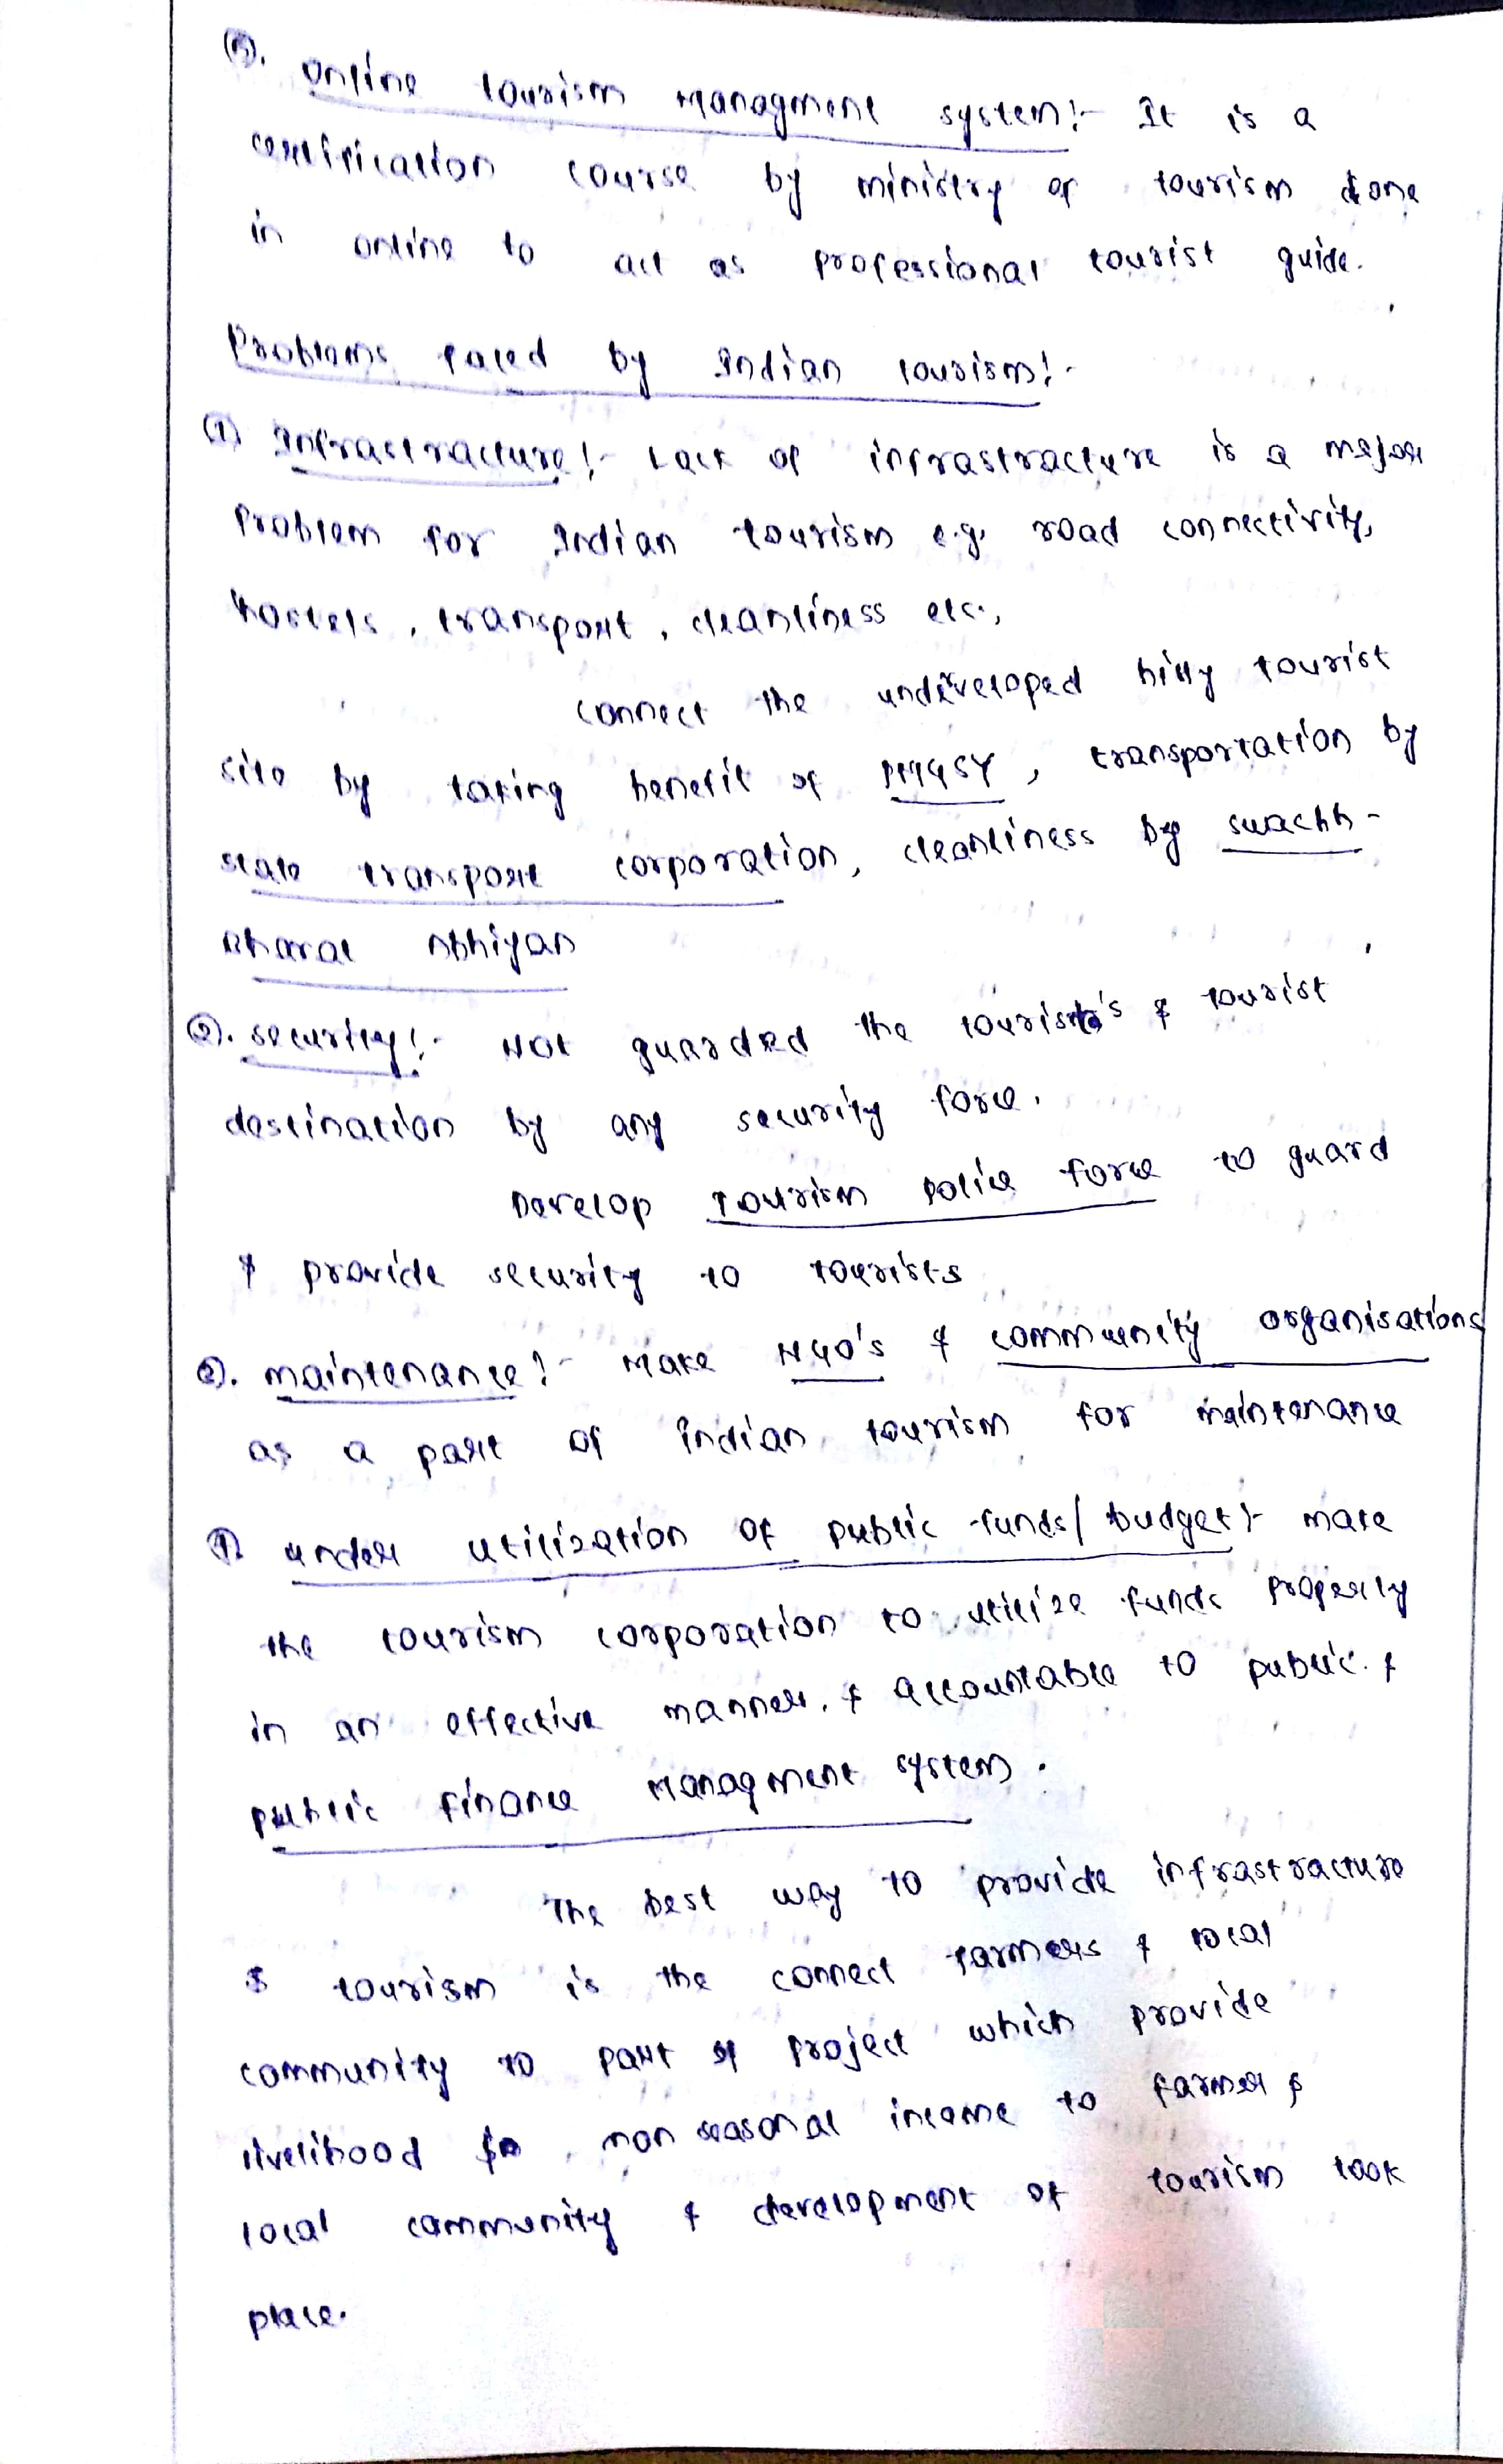 (5). Online tourism Managment system:- It is a
certification course by ministry of tourism done
in online to act as professional tourist guide.
Problems faced by Indian tourism:-
(1) Infrastracture:- Lack of infrastracture is a major
Problem for Indian tourism e.g. road connectivity,
hostels, transport, cleanliness etc.,
connect the undeveloped hilly tourist
site by taking benefit of PMGSY, transportation by
state transport corporation, cleanliness by swachh-
Bharat Abhiyan
(2). security:- Not guarded the tourists's & tourist
destination by any security force.
Develop Tourism police force to guard
& provide security to tourists
(3). maintenance:- Make NGO's & community organisations
as a part of Indian tourism for maintenance
(4). under utilization of public funds/budget:- make
the tourism corporation to utilize funds properly
in an effective manner. & accountable to public. &
public finance Managment system.
The best way to provide infrastracture
& tourism is the connect farmers & local
community to part of project which provide
livelihood non seasonal income to farmer &
local community & development of tourism took
place.